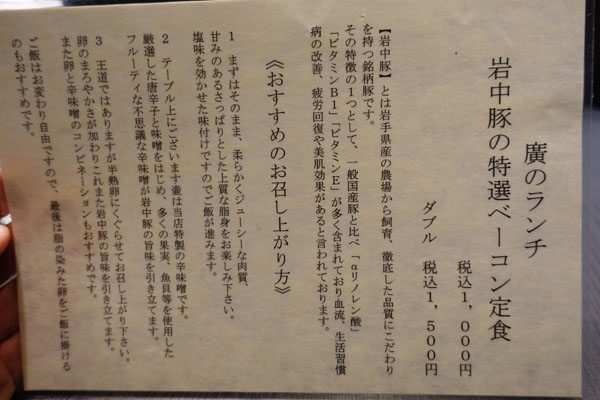 廣のランチ
岩中豚の特選ベーコン定食
税込1,000円
ダブル 税込1,500円
【岩中豚】とは岩手県産の農場から飼育、徹底した品質にこだわり
を持つ銘柄豚です。
その特徴の1つとして、一般国産豚と比べ「αリノレン酸」
「ビタミンB1」「ビタミンE」が多く含まれており血流、生活習慣
病の改善、疲労回復や美肌効果があると言われております。
《おすすめのお召し上がり方》
1 まずはそのまま、柔らかくジューシーな肉質、
甘みのあるさっぱりとした上質な脂身をお楽しみ下さい。
塩味を効かせた味付けですのでご飯が進みます。
2 テーブル上にございます壷は当店特製の辛味噌です。
厳選した唐辛子と味噌をはじめ、多くの果実、魚貝等を使用した
フルーティな不思議な辛味噌が岩中豚の旨味を引き立てます。
3 王道ではありますが半熟卵にくぐらせてお召し上がり下さい。
卵のまろやかさが加わりこれまた岩中豚の旨味を引き立てます。
また卵と辛味噌のコンビネーションもおすすめです。
ご飯はお変わり自由ですので、最後は脂の染みた卵をご飯に掛ける
のもおすすめです。